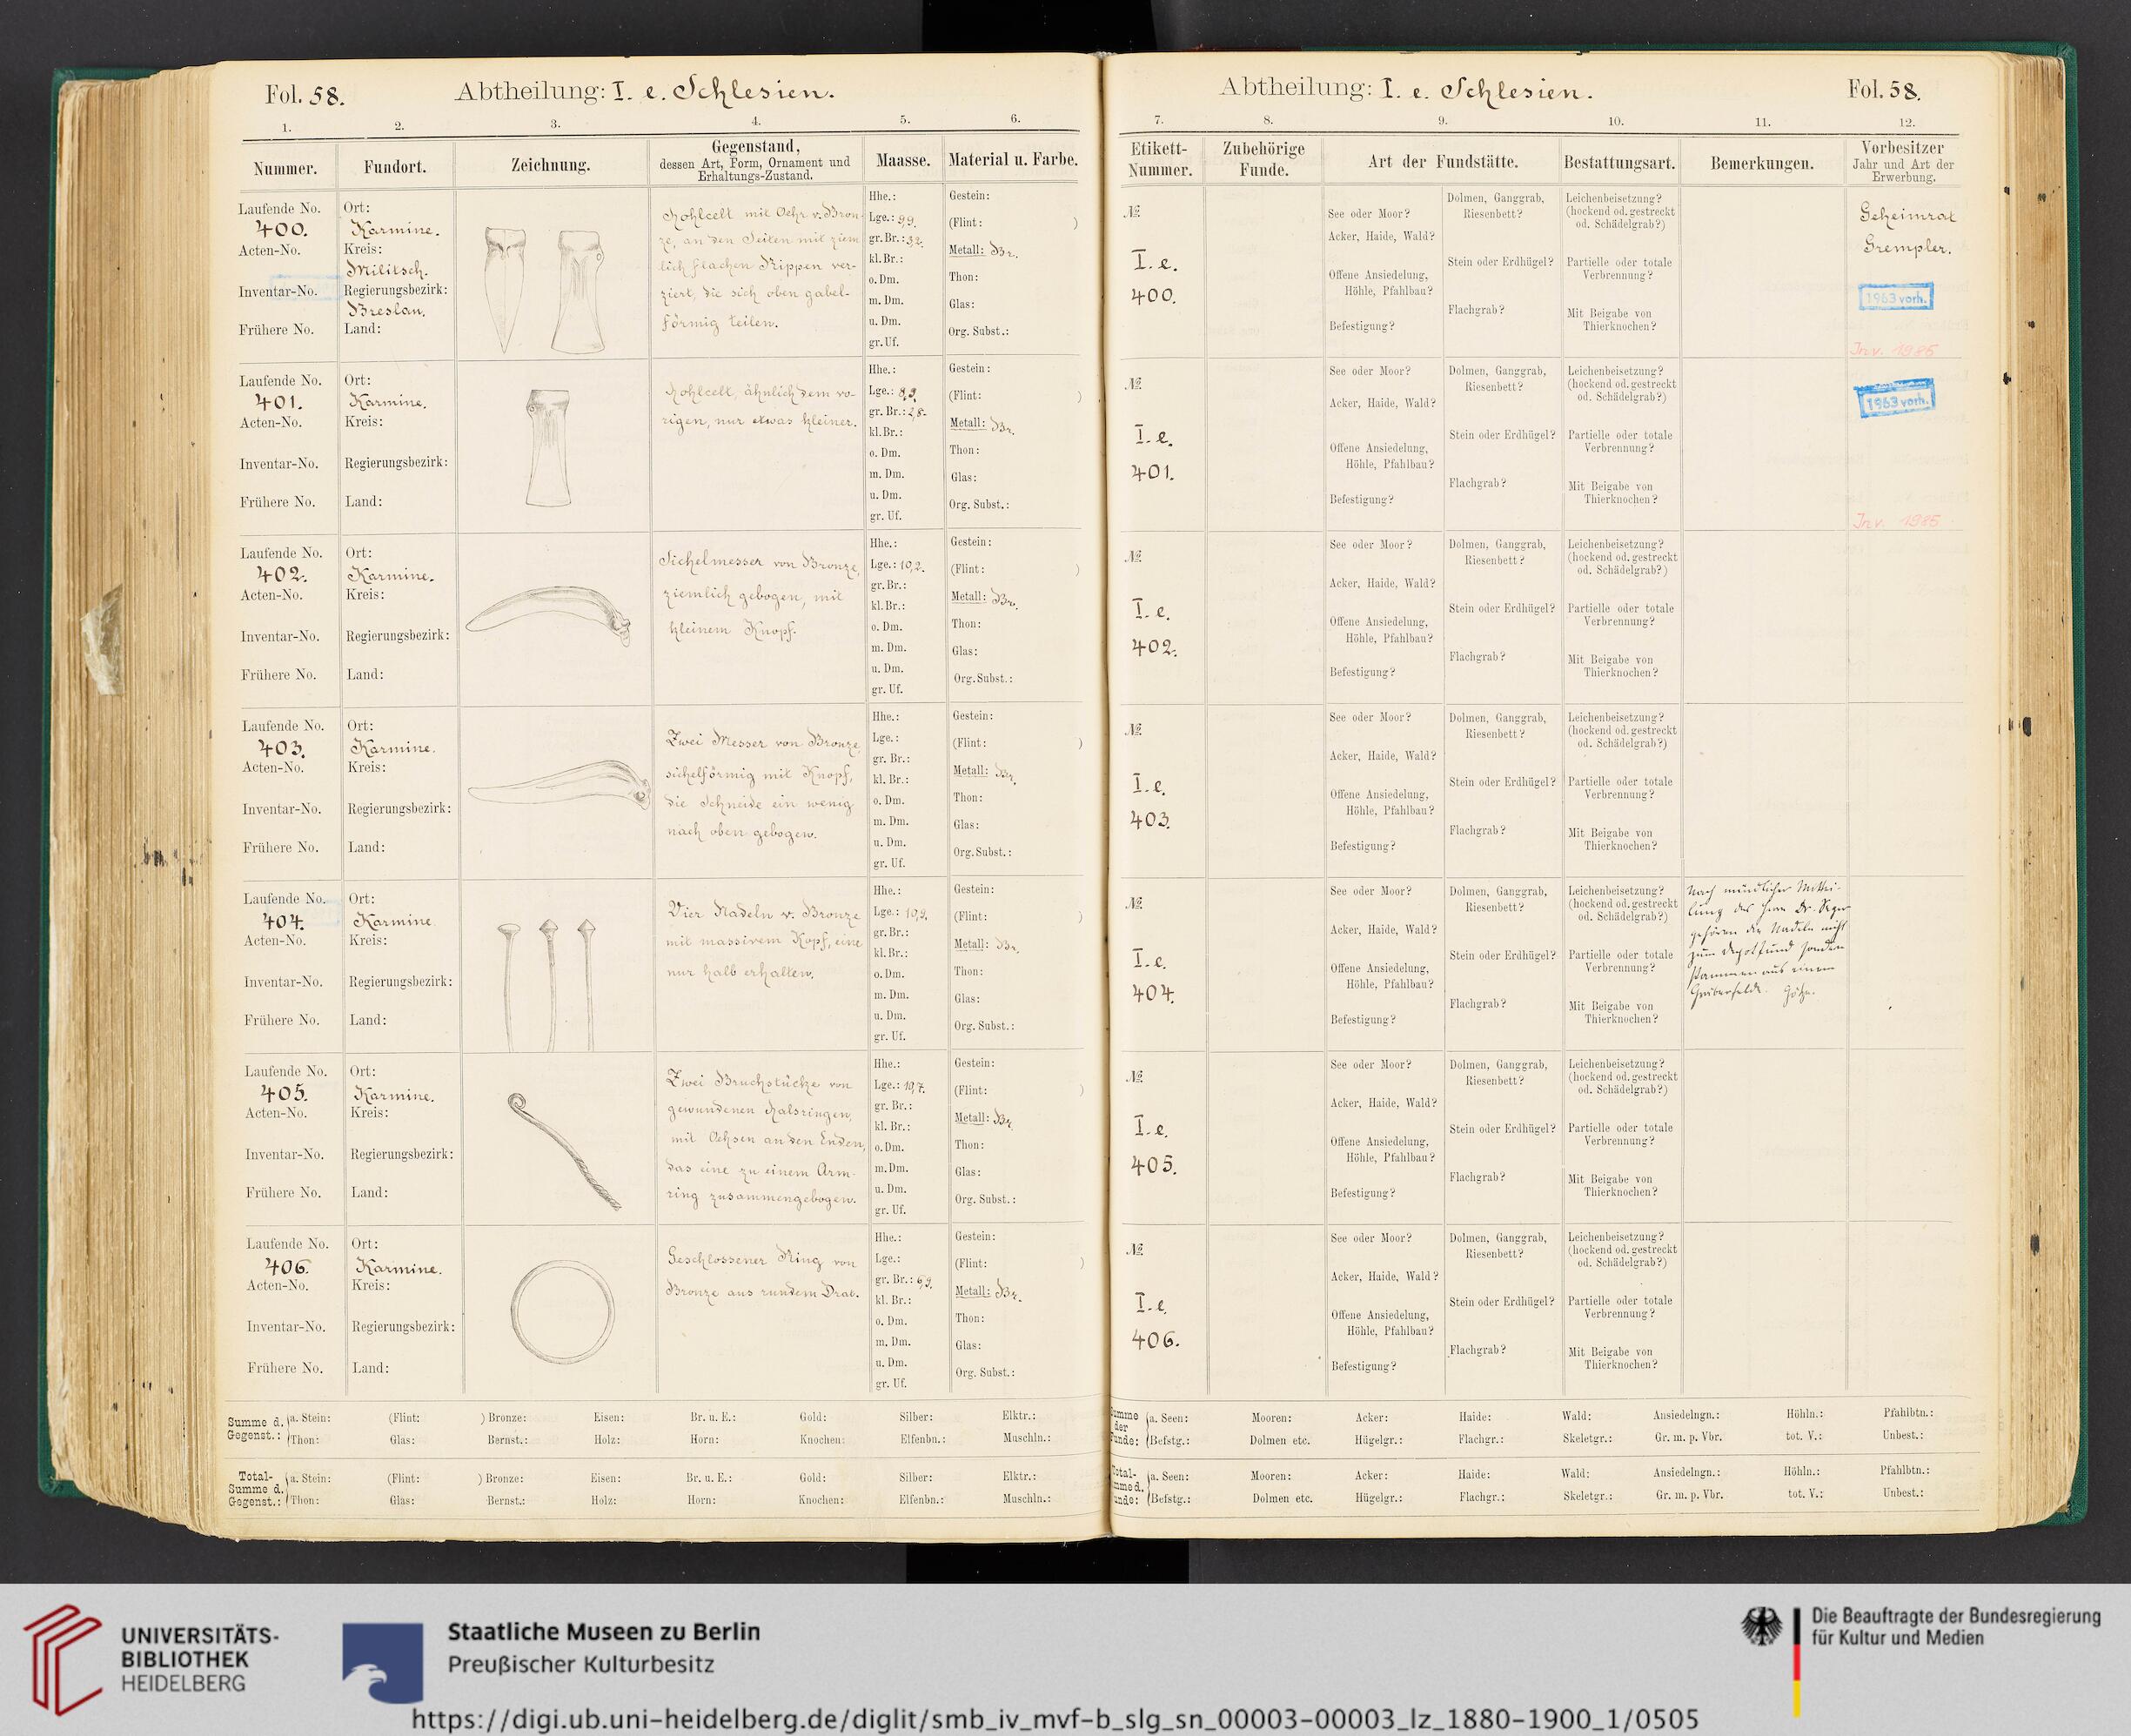 Fol. 58.
Abtheilung: I. e. Schlesien.
1. 2. 3. 4. 5. 6.
Nummer. Fundort. Zeichnung. Gegenstand, dessen Art, Form, Ornament und Erhaltungs-Zustand. Maasse. Material u. Farbe.
Laufende No. 400.
Acten-No.
Inventar-No.
Frühere No.
Ort: Karmine.
Kreis: Militsch.
Regierungsbezirk: Breslau.
Land:
Hohlcelt mit Oehr v. Bron-
ze, an den Seiten mit ziem
lich flachen Rippen ver-
ziert, die sich oben gabel-
förmig teilen.
Hhe.:
Lge.: 9,9.
gr. Br.: 3,2.
kl. Br.:
o. Dm.
m. Dm.
u. Dm.
gr. Uf.
Gestein:
(Flint: )
Metall: Br.
Thon:
Glas:
Org. Subst.:
Laufende No. 401.
Acten-No.
Inventar-No.
Frühere No.
Ort: Karmine.
Kreis:
Regierungsbezirk:
Land:
Hohlcelt, ähnlich dem vo-
rigen, nur etwas kleiner.
Hhe.:
Lge.: 8,9.
gr. Br.: 2,8.
kl. Br.:
o. Dm.
m. Dm.
u. Dm.
gr. Uf.
Gestein:
(Flint: )
Metall: Br.
Thon:
Glas:
Org. Subst.:
Laufende No. 402.
Acten-No.
Inventar-No.
Frühere No.
Ort: Karmine.
Kreis:
Regierungsbezirk:
Land:
Sichelmesser von Bronze,
ziemlich gebogen, mit
kleinem Knopf.
Hhe.:
Lge.: 10,2.
gr. Br.:
kl. Br.:
o. Dm.
m. Dm.
u. Dm.
gr. Uf.
Gestein:
(Flint: )
Metall: Br.
Thon:
Glas:
Org. Subst.:
Laufende No. 403.
Acten-No.
Inventar-No.
Frühere No.
Ort: Karmine.
Kreis:
Regierungsbezirk:
Land:
Zwei Messer von Bronze,
sichelförmig mit Knopf,
die Schneide ein wenig
nach oben gebogen.
Hhe.:
Lge.:
gr. Br.:
kl. Br.:
o. Dm.
m. Dm.
u. Dm.
gr. Uf.
Gestein:
(Flint: )
Metall: Br.
Thon:
Glas:
Org. Subst.:
Laufende No. 404.
Acten-No.
Inventar-No.
Frühere No.
Ort: Karmine
Kreis:
Regierungsbezirk:
Land:
Vier Nadeln v. Bronze
mit massivem Kopf, eine
nur halb erhalten.
Hhe.:
Lge.: 10,9.
gr. Br.:
kl. Br.:
o. Dm.
m. Dm.
u. Dm.
gr. Uf.
Gestein:
(Flint: )
Metall: Br.
Thon:
Glas:
Org. Subst.:
Laufende No. 405.
Acten-No.
Inventar-No.
Frühere No.
Ort: Karmine.
Kreis:
Regierungsbezirk:
Land:
Zwei Bruchstücke von
gewundenen Halsringen,
mit Oehsen an den Enden,
das eine zu einem Arm-
ring zusammengebogen.
Hhe.:
Lge.: 10,7.
gr. Br.:
kl. Br.:
o. Dm.
m. Dm.
u. Dm.
gr. Uf.
Gestein:
(Flint: )
Metall: Br.
Thon:
Glas:
Org. Subst.:
Laufende No. 406.
Acten-No.
Inventar-No.
Frühere No.
Ort: Karmine.
Kreis:
Regierungsbezirk:
Land:
Geschlossener Ring von
Bronze aus rundem Drat.
Hhe.:
Lge.:
gr. Br.: 6,9.
kl. Br.:
o. Dm.
m. Dm.
u. Dm.
gr. Uf.
Gestein:
(Flint: )
Metall: Br.
Thon:
Glas:
Org. Subst.:
Summe d. Gegenst.: a. Stein: (Flint: ) Bronze: Eisen: Br. u. E.: Gold: Silber: Elktr.:
Thon: Glas: Bernst.: Holz: Horn: Knochen: Elfenbn.: Muschln.:
Total-Summe d. Gegenst.: a. Stein: (Flint: ) Bronze: Eisen: Br. u. E.: Gold: Silber: Elktr.:
Thon: Glas: Bernst.: Holz: Horn: Knochen: Elfenbn.: Muschln.:
Abtheilung: I. e. Schlesien.
Fol. 58.
7. 8. 9. 10. 11. 12.
Etikett-Nummer. Zubehörige Funde. Art der Fundstätte. Bestattungsart. Bemerkungen. Vorbesitzer Jahr und Art der Erwerbung.
№ I. e. 400.
See oder Moor?
Acker, Haide, Wald?
Offene Ansiedelung, Höhle, Pfahlbau?
Befestigung?
Dolmen, Ganggrab, Riesenbett?
Stein oder Erdhügel?
Flachgrab?
Leichenbeisetzung? (hockend od. gestreckt od. Schädelgrab?)
Partielle oder totale Verbrennung?
Mit Beigabe von Thierknochen?
Geheimrat
Grempler.
1963 vorh.
Inv. 1985
№ I. e. 401.
See oder Moor?
Acker, Haide, Wald?
Offene Ansiedelung, Höhle, Pfahlbau?
Befestigung?
Dolmen, Ganggrab, Riesenbett?
Stein oder Erdhügel?
Flachgrab?
Leichenbeisetzung? (hockend od. gestreckt od. Schädelgrab?)
Partielle oder totale Verbrennung?
Mit Beigabe von Thierknochen?
1963 vorh.
Inv. 1985
№ I. e. 402.
See oder Moor?
Acker, Haide, Wald?
Offene Ansiedelung, Höhle, Pfahlbau?
Befestigung?
Dolmen, Ganggrab, Riesenbett?
Stein oder Erdhügel?
Flachgrab?
Leichenbeisetzung? (hockend od. gestreckt od. Schädelgrab?)
Partielle oder totale Verbrennung?
Mit Beigabe von Thierknochen?
№ I. e. 403.
See oder Moor?
Acker, Haide, Wald?
Offene Ansiedelung, Höhle, Pfahlbau?
Befestigung?
Dolmen, Ganggrab, Riesenbett?
Stein oder Erdhügel?
Flachgrab?
Leichenbeisetzung? (hockend od. gestreckt od. Schädelgrab?)
Partielle oder totale Verbrennung?
Mit Beigabe von Thierknochen?
№ I. e. 404.
See oder Moor?
Acker, Haide, Wald?
Offene Ansiedelung, Höhle, Pfahlbau?
Befestigung?
Dolmen, Ganggrab, Riesenbett?
Stein oder Erdhügel?
Flachgrab?
Leichenbeisetzung? (hockend od. gestreckt od. Schädelgrab?)
Partielle oder totale Verbrennung?
Mit Beigabe von Thierknochen?
Nach mündlicher Mittei-
lung des Herrn Dr. Seger
gehören die Nadeln nicht
zum Depotfund sondern
stammen aus einem
Gräberfelde. Götze.
№ I. e. 405.
See oder Moor?
Acker, Haide, Wald?
Offene Ansiedelung, Höhle, Pfahlbau?
Befestigung?
Dolmen, Ganggrab, Riesenbett?
Stein oder Erdhügel?
Flachgrab?
Leichenbeisetzung? (hockend od. gestreckt od. Schädelgrab?)
Partielle oder totale Verbrennung?
Mit Beigabe von Thierknochen?
№ I. e. 406.
See oder Moor?
Acker, Haide, Wald?
Offene Ansiedelung, Höhle, Pfahlbau?
Befestigung?
Dolmen, Ganggrab, Riesenbett?
Stein oder Erdhügel?
Flachgrab?
Leichenbeisetzung? (hockend od. gestreckt od. Schädelgrab?)
Partielle oder totale Verbrennung?
Mit Beigabe von Thierknochen?
a. Seen: Mooren: Acker: Haide: Wald: Ansiedelngn.: Höhln.: Pfahlbtn.:
Befstg.: Dolmen etc. Hügelgr.: Flachgr.: Skeletgr.: Gr. m. p. Vbr. tot. V.: Unbest.:
a. Seen: Mooren: Acker: Haide: Wald: Ansiedelngn.: Höhln.: Pfahlbtn.:
Befstg.: Dolmen etc. Hügelgr.: Flachgr.: Skeletgr.: Gr. m. p. Vbr. tot. V.: Unbest.:
UNIVERSITÄTS-
BIBLIOTHEK
HEIDELBERG
Staatliche Museen zu Berlin
Preußischer Kulturbesitz
Die Beauftragte der Bundesregierung
für Kultur und Medien
https://digi.ub.uni-heidelberg.de/diglit/smb_iv_mvf-b_slg_sn_00003-00003_lz_1880-1900_1/0505